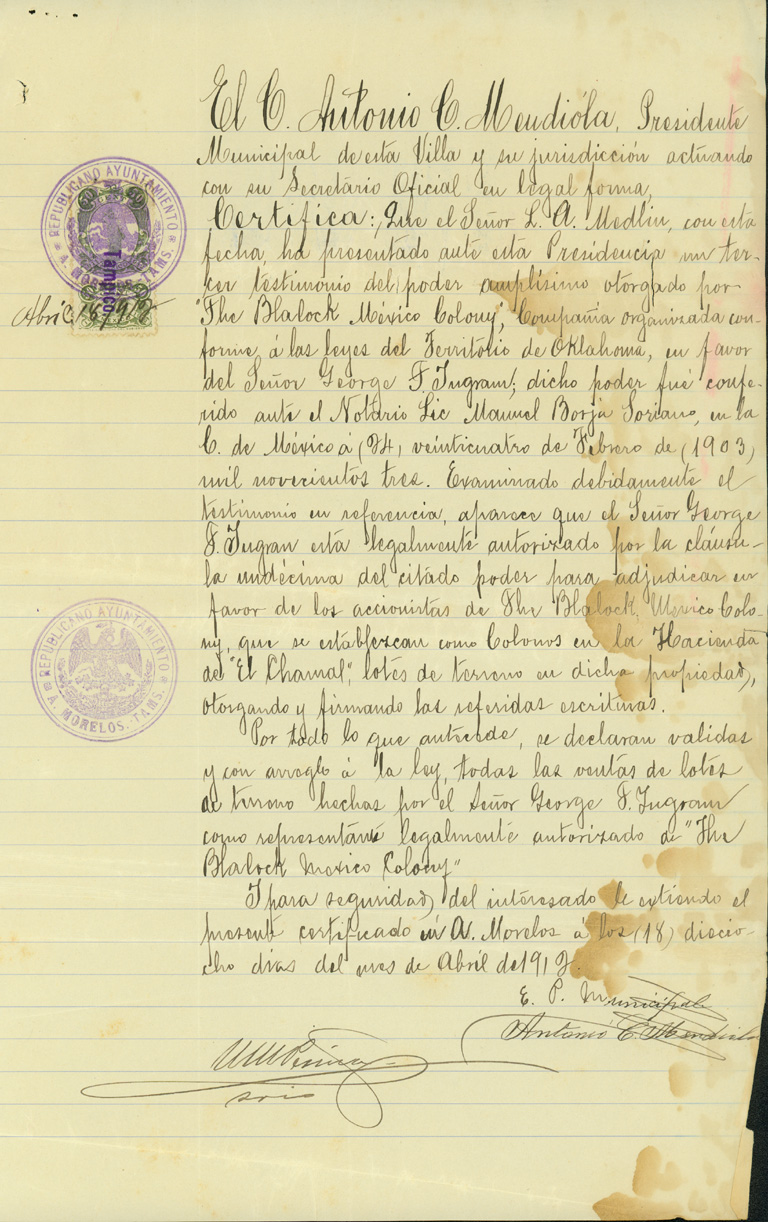 El C. Antonio C. Mendióla, Presidente
Municipal de esta Villa y su jurisdicción actuando
con su Secretario Oficial en legal forma,
Certifica:, Que el Señor L. A. Medlin, con esta
fecha, ha presentado ante esta Presidencia un ter-
cer testimonio del poder amplísimo otorgado por
"The Blalock México Colony", Compañia organizada con-
forme á las leyes del Territorio de Oklahoma, en favor
del Señor George F. Ingram; dicho poder fué confe-
rido ante el Notário Lic Manuel Borja Soriano, en la
C. de México á (24, veinticuatro de Febrero de (1903,
mil novecientos tres. Examinado debidamente el
testimonio en referencia, aparece que el Señor George
F. Ingran está legalmente autorizado por la cláusu-
la undécima del citado poder para adjudicar en
favor de los accionistas de The Blalock Mexico Colo-
ny, que se establezcan como Colonos en la Hacienda
de "El Chamal", lotes de terreno en dicha propiedad,
otorgando y firmando las referidas escrituras.
Por todo lo que antecede, se declaran validas
y con arreglo á la ley, todas las ventas de lotes
de terreno hechas por el Señor George F. Ingram
como representante legalmente autorizado de "The
Blalock Mexico Colony"
I para seguridad, del interesado le extiendo el
presente certificado en A. Morelos á los (18) diecio-
cho dias del mes de Abril de 1912.
E. P. Municipal
Antonio C. Mendiola
srio
REPUBLICANO AYUNTAMIENTO
A. MORELOS, TAMS.
Tampico
Abril 18/912
REPUBLICANO AYUNTAMIENTO
A. MORELOS, TAMS.